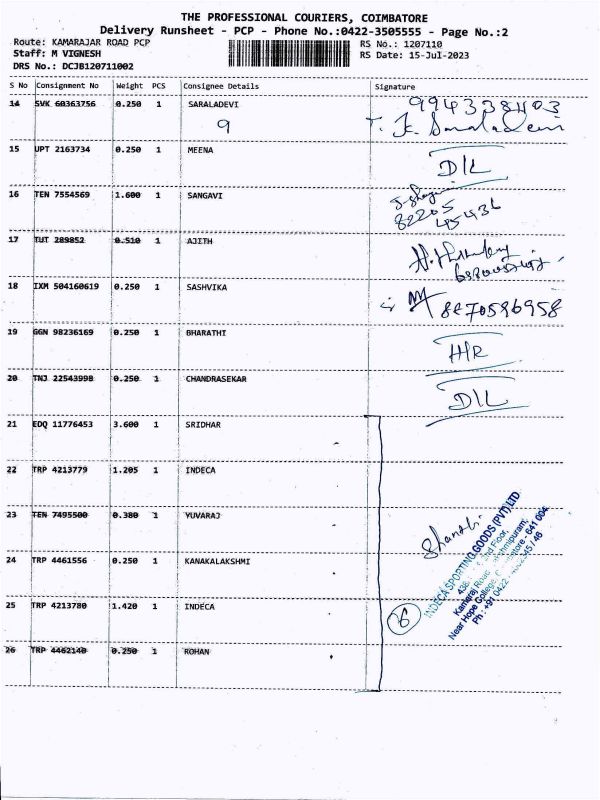 THE PROFESSIONAL COURIERS, COIMBATORE
Delivery Runsheet - PCP - Phone No.:0422-3505555 - Page No.:2
Route: KAMARAJAR ROAD PCP
RS No.: 1207110
Staff: M VIGNESH
RS Date: 15-Jul-2023
DRS No.: DCJB120711002
S No Consignment No Weight PCS Consignee Details Signature
14 SVK 60363756 0.250 1 SARALADEVI
9
15 UPT 2163734 0.250 1 MEENA
D/L
16 TEN 7554569 1.600 1 SANGAVI
82205
45436
17 TUT 289852 0.510 1 AJITH
18 IXM 504160619 0.250 1 SASHVIKA 8870596958
19 GGN 98236169 0.250 1 BHARATHI
HR
20 TNJ 22543998 0.250 1 CHANDRASEKAR
D/L
21 EDQ 11776453 3.600 1 SRIDHAR
22 TRP 4213779 1.205 1 INDECA
23 TEN 7495500 0.380 1 YUVARAJ
24 TRP 4461556 0.250 1 KANAKALAKSHMI
25 TRP 4213780 1.420 1 INDECA
26 TRP 4462140 0.250 1 ROHAN
INDECA SPORTING GOODS (PVT) LTD
2nd Floor,
Kamaraj Road,
Near Hope College, 641 004
Ph : +91 0422